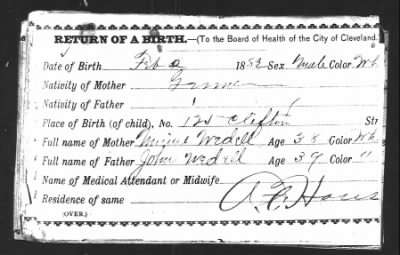 RETURN OF A BIRTH.—(To the Board of Health of the City of Cleveland.
Date of Birth Feb 1882 Sex Male Color Wh
Nativity of Mother
Nativity of Father "
Place of Birth (of child). No. 125 Clifton Str
Full name of Mother Minnie Wedell Age 38 Color Wh
Full name of Father John Wedell Age 39 Color "
Name of Medical Attendant or Midwife
Residence of same
(OVER.)